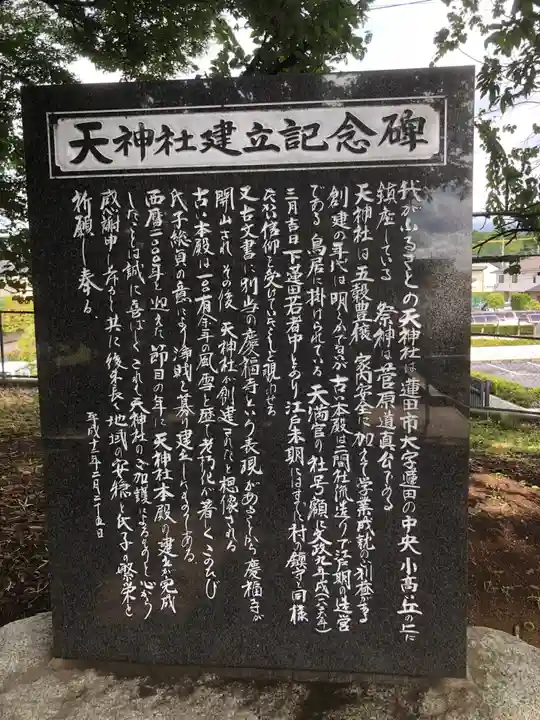 天神社建立記念碑
我がふるさとの天神社は蓮田市大字蓮田の中央小高い丘の上に
鎮座している 祭神は菅原道真公である
天神社は五穀豊穣 家内安全に加えて学業成就のご利益がある
創建の年代は明らかでないが古い本殿は二間社流造りで江戸期の造営
である 鳥居に掛けられている天満宮の社号額に文政九年戌(一八二六年)
三月吉日下蓮田若者中とあり江戸末期にはすでに村の鎮守と同様
たかい信仰を受けていたものと現われる
又古文書に別当の慶福寺という表現があることから慶福寺が
開山され その後 天神社が創造されたと想像される
古い本殿は一八〇有余年の風雪を歴て老朽化が著しくこのたび
氏子総員の意により浄財を募り建立したものである
西暦二〇〇〇年を迎えた節目の年に天神社本殿の建立が完成
したことは誠に喜ばしくこれも天神社のご加護によるものと心から
感謝申し上ると共に後末長く地域の安穏と氏子の繁栄を
祈願し奉る
平成十二年三月二十五日